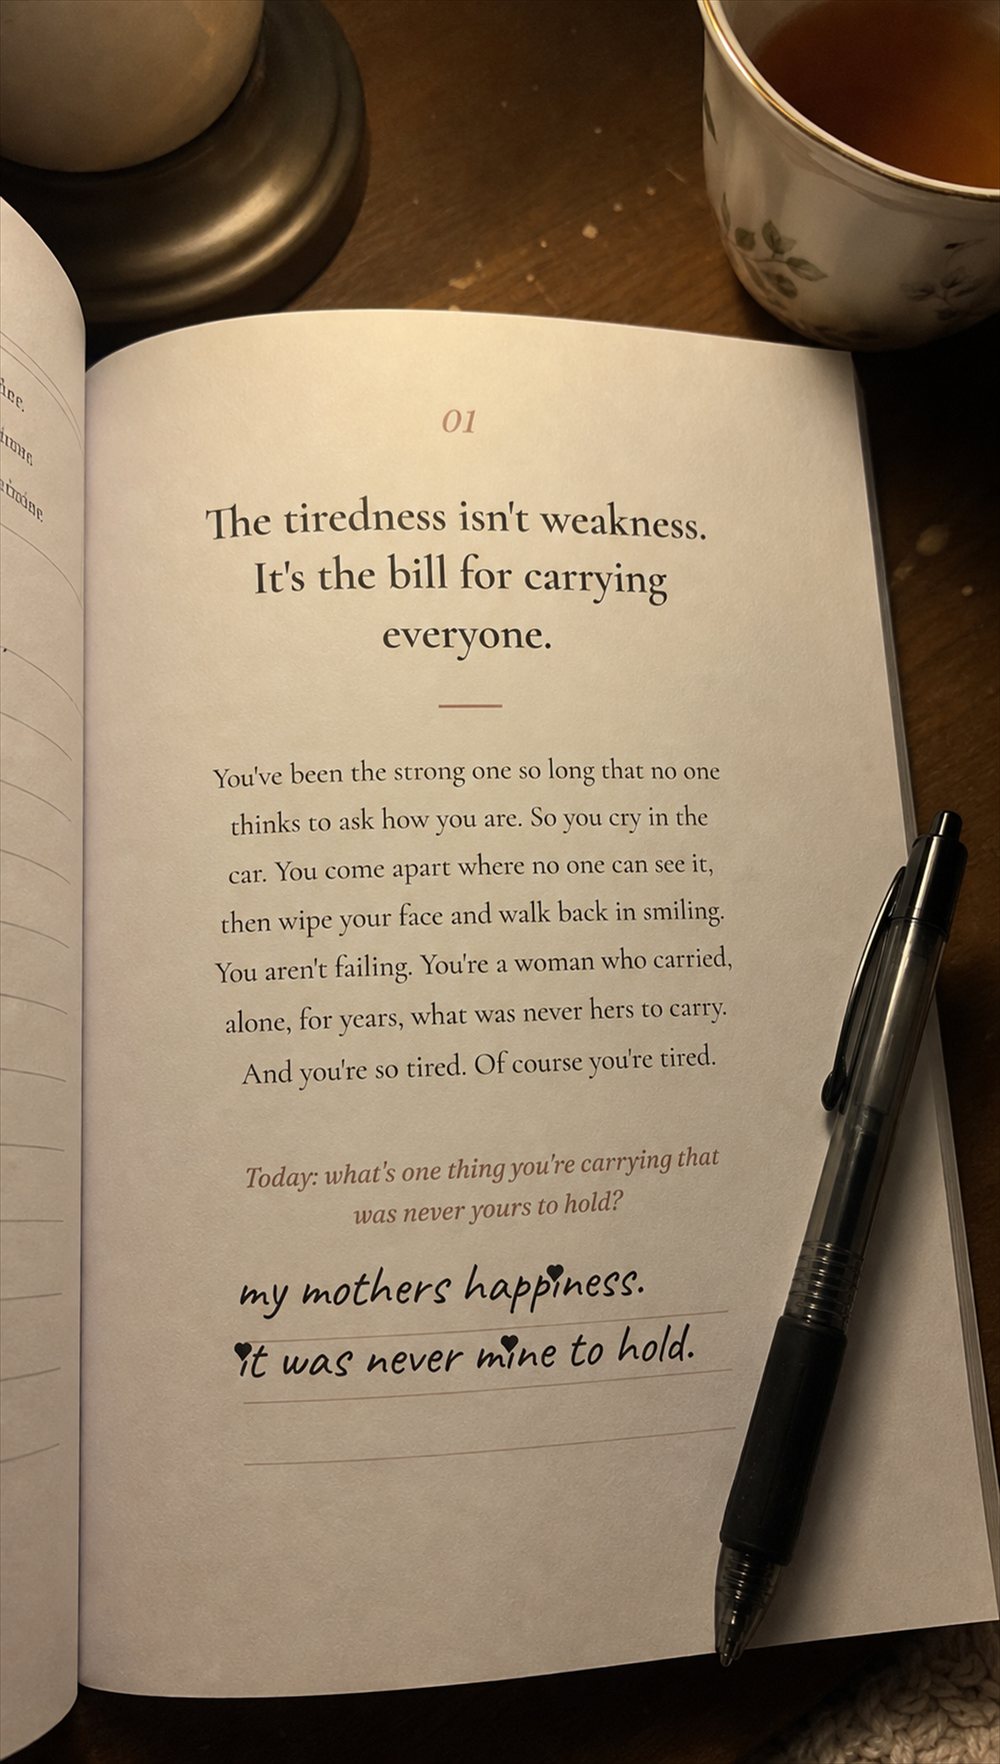 01
The tiredness isn't weakness.
It's the bill for carrying
everyone.
You've been the strong one so long that no one
thinks to ask how you are. So you cry in the
car. You come apart where no one can see it,
then wipe your face and walk back in smiling.
You aren't failing. You're a woman who carried,
alone, for years, what was never hers to carry.
And you're so tired. Of course you're tired.
Today: what's one thing you're carrying that
was never yours to hold?
my mothers happiness.
it was never mine to hold.